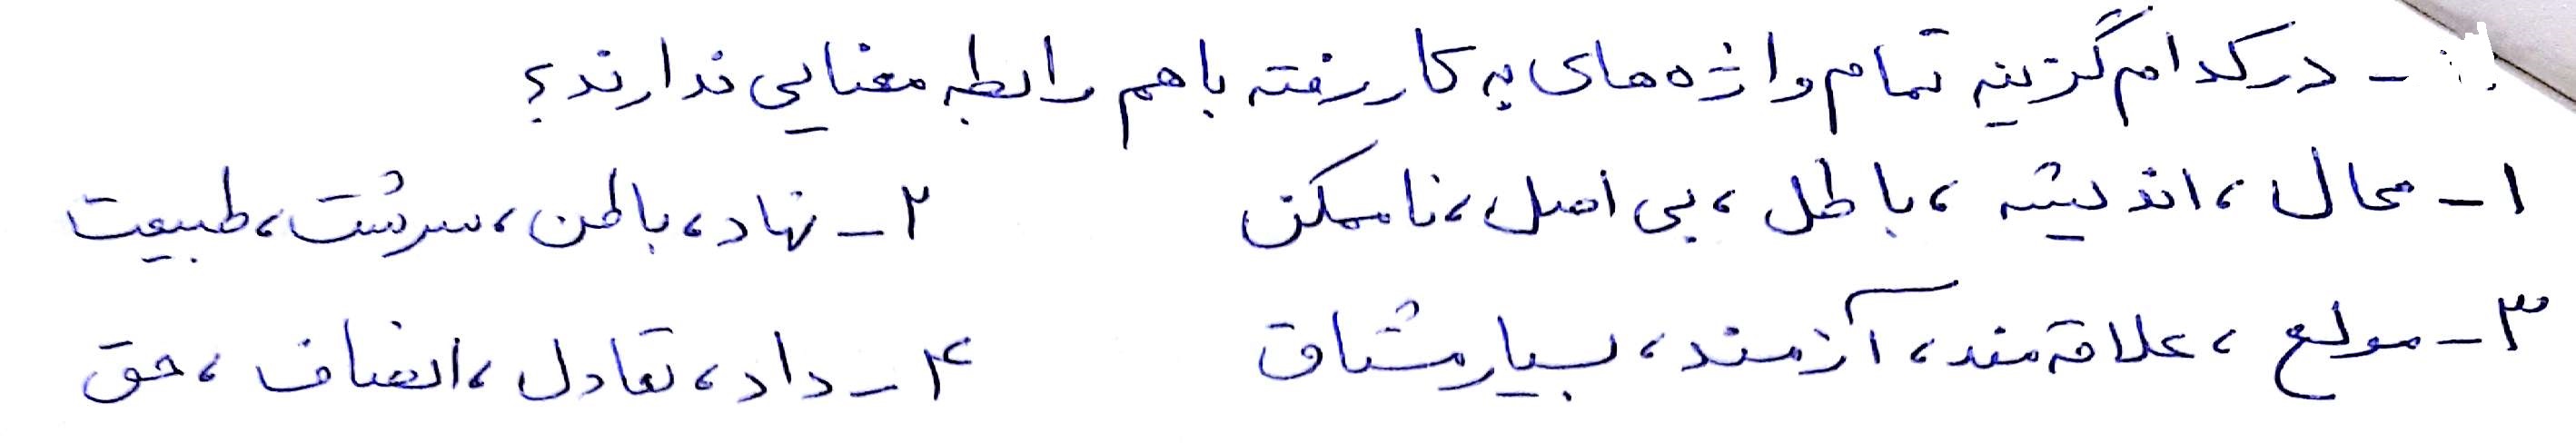 - در کدام گزینه تمام واژه های به کار رفته با هم رابطه معنایی ندارند؟
۱- محال، اندیشه، باطل، بی اصل، ناممکن ۲- نهاد، باطن، سرشت، طبیعت
۳- مولع، علاقه مند، آزمند، بسیار مشتاق ۴- داد، تعادل، انصاف، حق